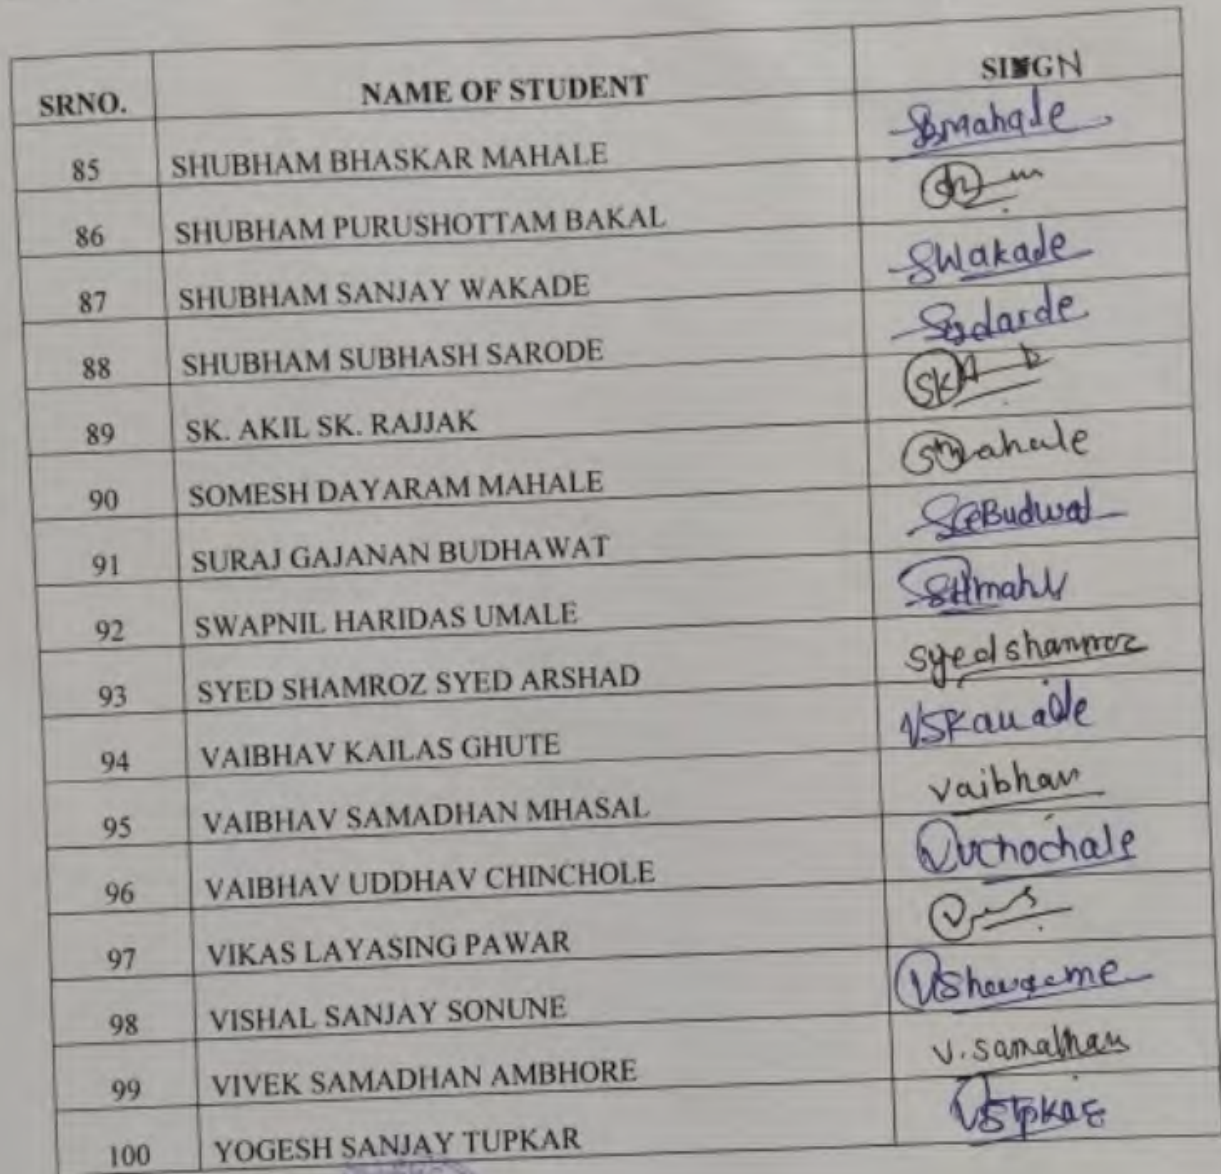 SRNO. NAME OF STUDENT SINGN
85 SHUBHAM BHASKAR MAHALE SBMahale
86 SHUBHAM PURUSHOTTAM BAKAL
87 SHUBHAM SANJAY WAKADE SWakade
88 SHUBHAM SUBHASH SARODE
89 SK. AKIL SK. RAJJAK SK
90 SOMESH DAYARAM MAHALE
91 SURAJ GAJANAN BUDHAWAT SGBudwat
92 SWAPNIL HARIDAS UMALE
93 SYED SHAMROZ SYED ARSHAD syed shamroz
94 VAIBHAV KAILAS GHUTE
95 VAIBHAV SAMADHAN MHASAL vaibhav
96 VAIBHAV UDDHAV CHINCHOLE
97 VIKAS LAYASING PAWAR
98 VISHAL SANJAY SONUNE
99 VIVEK SAMADHAN AMBHORE
100 YOGESH SANJAY TUPKAR